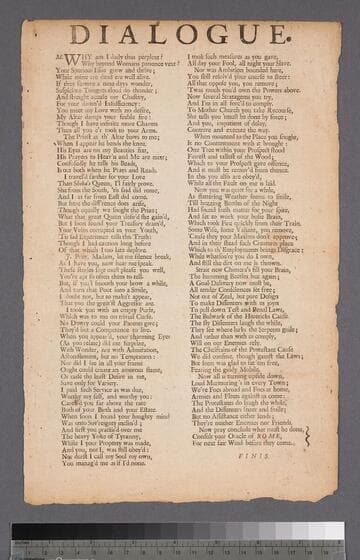 DIALOGUE.
M. WHY am I daily thus perplext?
Why beyond Womens patience vext?
Your Spurious Issue grow and thrive;
While mine are dead ere well alive.
If they survive a nine days wonder,
Suspicious Tongues aloud do thunder;
And straight accuse our Chastity,
For your damn'd Insufficiency:
You meet my Love with no desire,
My Altar damps your feeble fire:
Though I have infinite more Charms
Than all you e'r took to your Arms.
The Priest at th' Altar bows to me,
When I appear he bends the knee.
His Eyes are on my Beauties fixt,
His Prayers to Heav'n and Me are mixt;
Confusedly he tells his Beads,
Is out both when he Prays and Reads.
I travell'd farther for your Love
Than Sheba's Queen, I'l fairly prove.
She from the South, 'tis said did come,
And I as far from East did come.
But here the difference does arise,
Though equally we sought the Prize;
What that great Queen desir'd she gain'd,
But I poor Queen have never drain'd,
Your Veins corrupted in your Youth,
Tis sad Experience tells this Truth:
Though I had caution long before
Of that which I too late deplore.
J. Pray, Madam, let me silence break,
As I have you, now hear me speak.
These stories long must please you well,
You're apt so often them to tell.
But, if you'l smooth your brow a while,
And turn that Pout into a Smile,
I doubt not, but to make't appear,
That you the greatest Aggressor are.
I took you with an empty Purse,
Which was to me no trivial Curse.
No Dowry could your Parents give;
They'd but a Competence to live.
When you appear'd, your charming Eyes
(As you relate) did me surprise,
With Wonder, not with Admiration,
Astonishment, but no Temptation:
Nor did I see in all your frame
Ought could create an amorous flame,
Or cause the least Desire in me,
Save only for Variety.
I paid such Service as was due,
Worthy my self, and worthy you:
Caress'd you far above the rate
Both of your Birth and your Estate.
When soon I found your haughty mind
Was unto Sov'reignty inclin'd;
And first you practis'd over me
The heavy Yoke of Tyranny,
While I your Property was made,
And you, not I, was still obey'd:
Nor durst I call my Soul my own,
You manag'd me as if I'd none.
I took such measures as you gave,
All day your Fool, all night your Slave.
Nor was Ambition bounded here,
You still resolv'd your course to steer:
All that oppose you, you remove;
'Twas much you'd own the Powers above.
Now several Stratagems you try,
And I'm in all forc'd to comply.
To Mother Church you take Recourse,
She tells you it must be done by force;
And you, impatient of delay,
Contrive and execute the way.
When mounted to the Place you sought,
It no Contentment with it brought:
One Tree within your Prospect stood
Fairest and tallest of the Wood;
Which to your Prospect gave offence,
And it must be remov'd from thence.
In this you also are obey'd,
While all the Fault on me is laid.
Now you was quiet for a while,
As flattering Weather seems to smile,
Till brooding Births of the Night
Had found fresh matter for your spite,
And set to work your busie Brain,
Which took Fire quickly from their Train.
Some Wise, some Valiant, you remove,
Cause they your Maxims don't approve;
And in their stead such Creatures place
Which to th' Employments brings Disgrace;
While whatsoe'er you do I own,
And still the dirt on me is thrown.
Strait new Chimera's fill your Brain,
The humming Beetles buz again;
A Goal-Delivery now must be,
All tender Consciences set free;
Not out of Zeal, but pure Design
To make Dissenters with us joyn
To pull down Test and Penal Laws,
The Bulwark of the Hereticks Cause.
The sly Dissenters laugh the while,
They see where lurks the Serpents guile;
And rather than with us comply,
Will on our Enemies rely.
The Chieftains of the Protestant Cause
We did confine, though 'gainst the Laws;
But soon was glad to set 'em free,
Fearing the giddy Mobile.
Now all is turning upside down,
Loud Murmuring's in every Town;
We've Foes abroad and Foes at home,
Armies and Fleets against us come:
The Protestants do laugh the while,
And the Dissenters sneer and smile;
But no Assistance either lends;
They're neither Enemies nor Friends.
Now pray conclude what must be done,
Consult your Oracle of ROME,
For next fair Wind before they come.
FINIS.